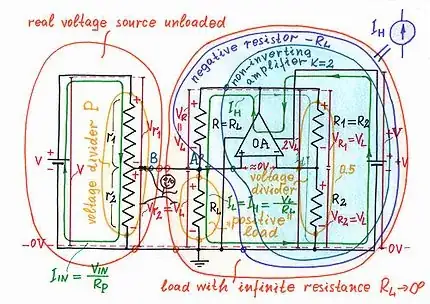 real voltage source unloaded
I_H
negative resistor -R_L
non-inverting
amplifier K=2
voltage divider P
V
V
r1
r2
V_r1
V_r2 = V_L
B
A
V_R = V_L
R=R_L
I_H
OA
2V_L
≈0V
R1=R2
V_R1=V_L
0.5
R2
V_R2=V_L
voltage
divider
I_L=I_H=V_L/R_L
R_L
positive
load
V
-0V
-0V
I_IN = V_IN/R_P
load with infinite resistance R_L→∞